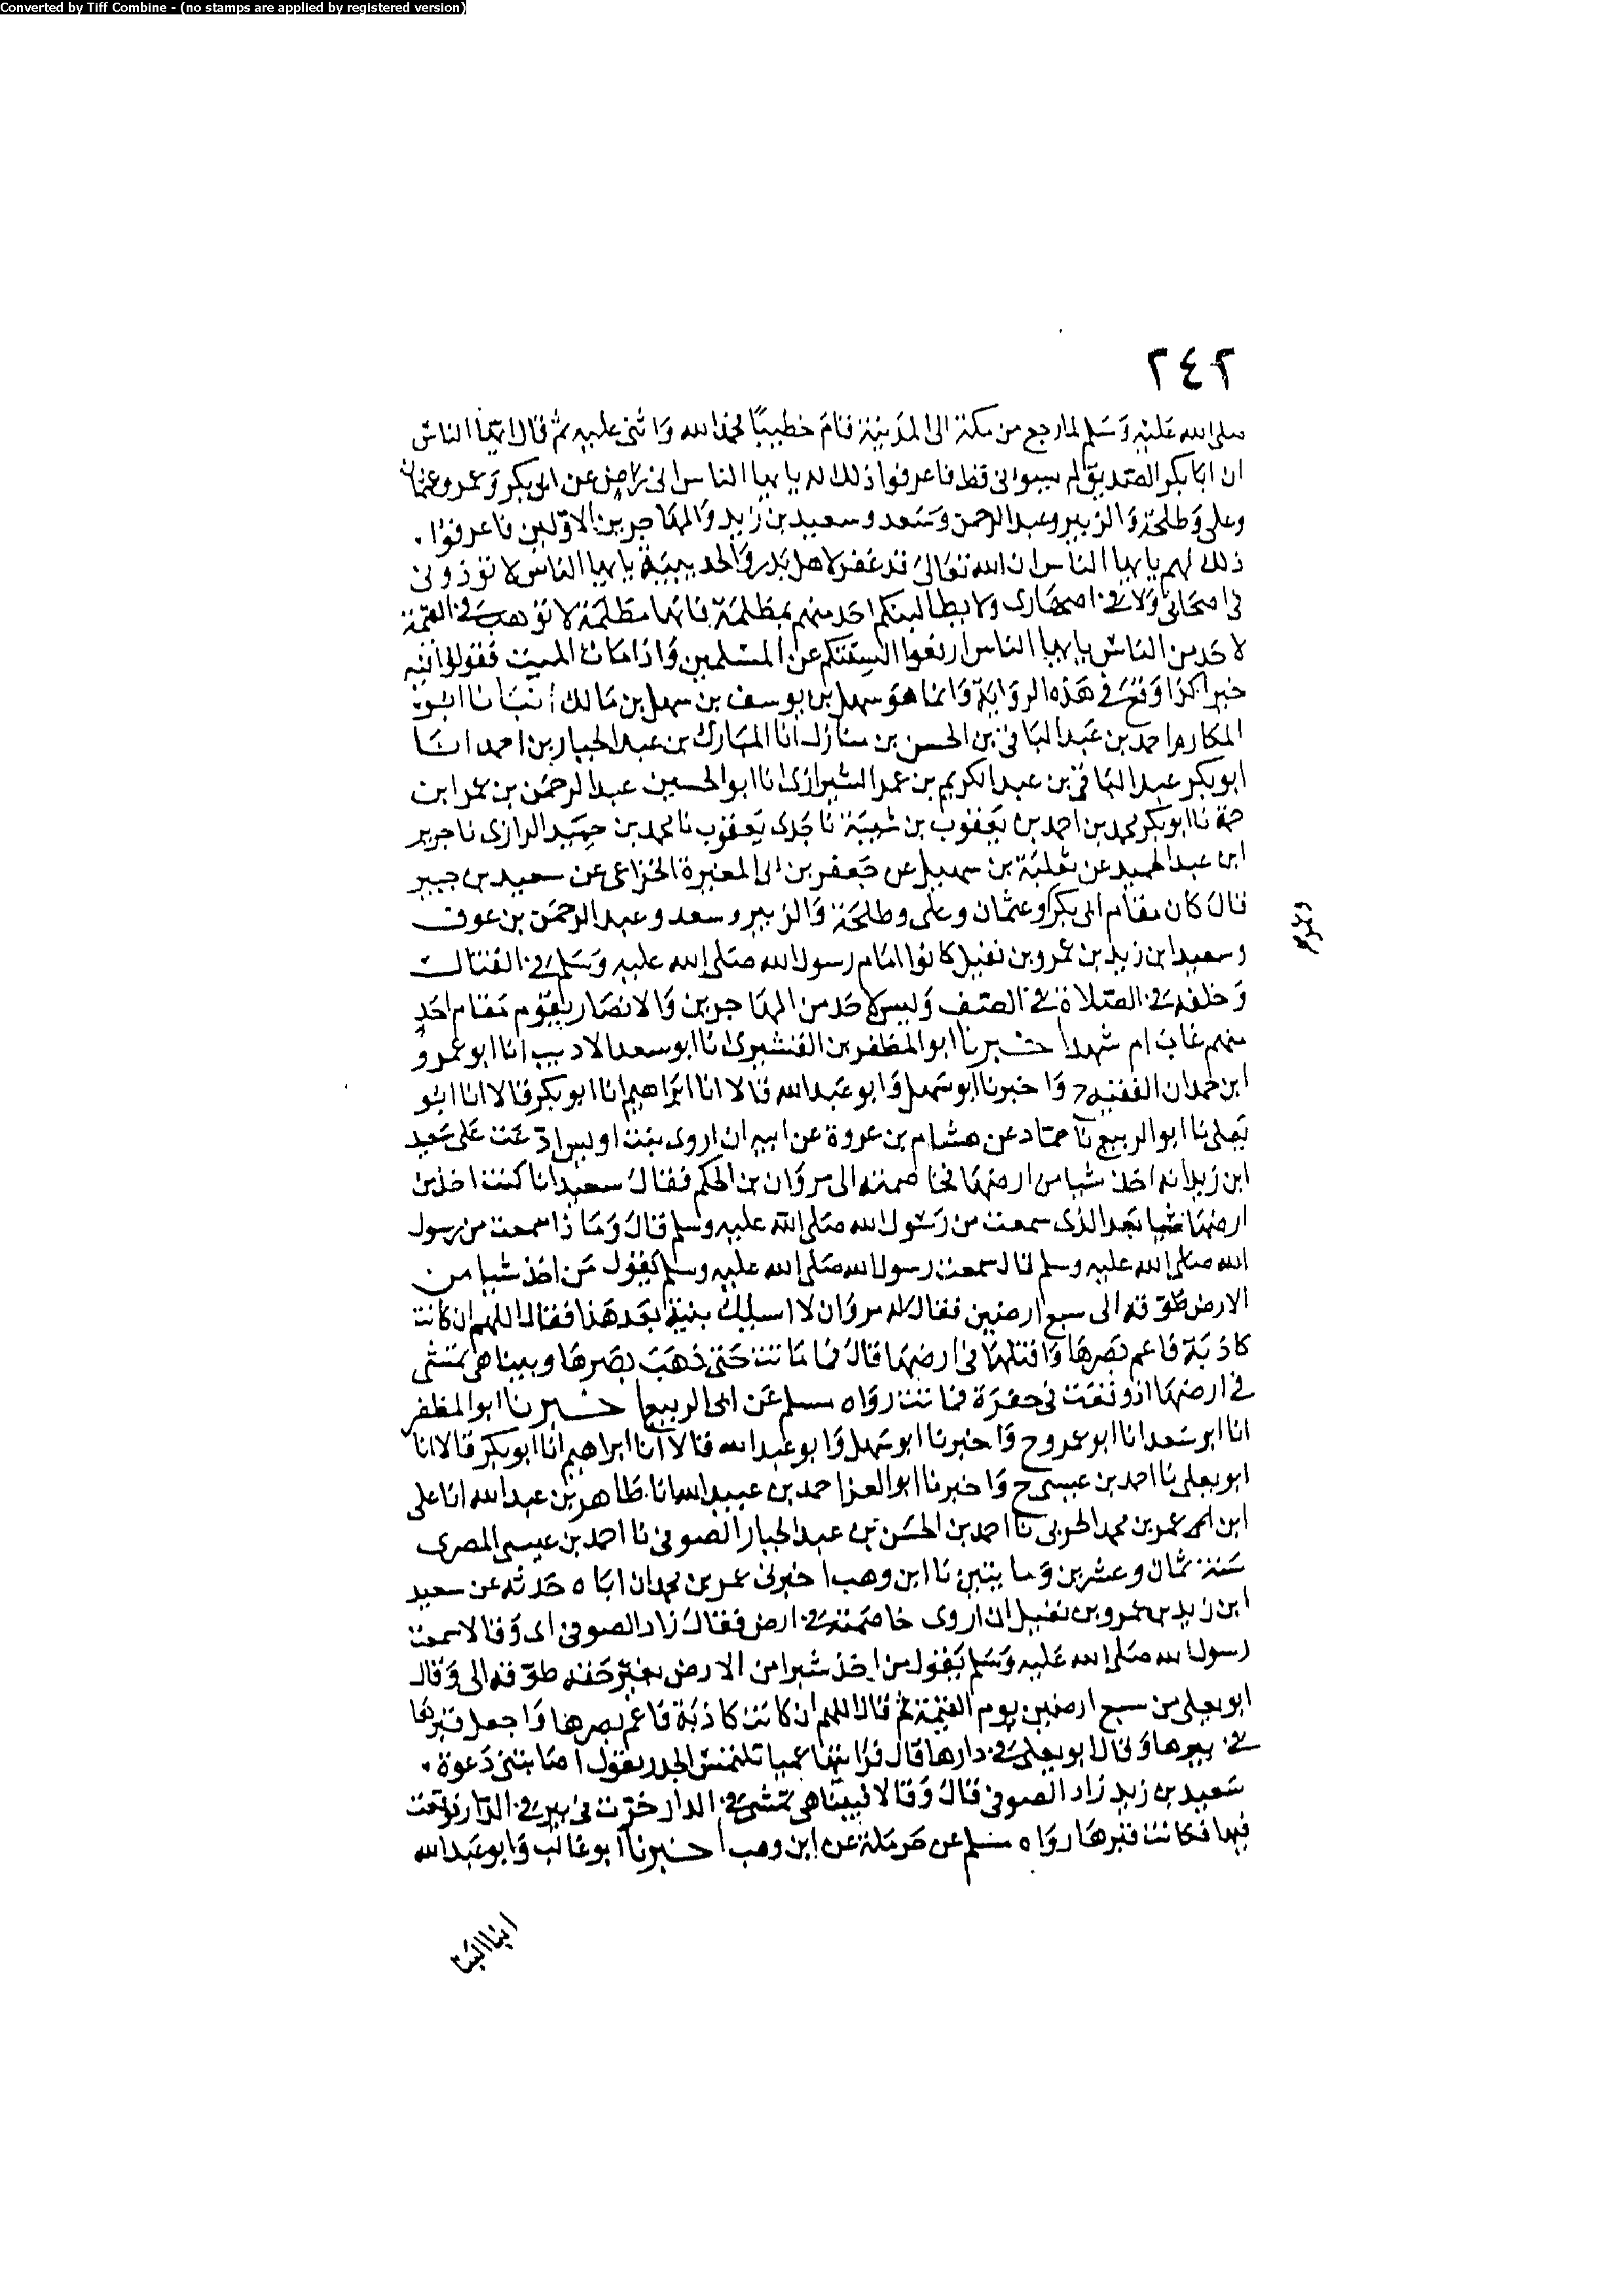 Converted by Tiff Combine - (no stamps are applied by registered version)
٢٤٢
صلى الله عليه وسلم لما رجع من مكة الى المدينة قام خطيبا فحمد الله واثنى عليه ثم قال ايها الناس
ان ابا بكر الصديق لم يسوانى قط فاعرفوا ذلك له يا ايها الناس انى راض عن ابى بكر وعمر وعثمان
وعلى وطلحة والزبير وعبد الرحمن وسعد وسعيد بن زيد والمهاجرين الاولين فاعرفوا
ذلك لهم يا ايها الناس ان الله تعالى قد غفر لاهل بدر والحديبية يا ايها الناس لا توذونى
فى اصحابى ولا فى اصهارى ولا يطالبنكم احد منهم بمظلمة فانها مظلمة لا توهب فى القيمة
لاحد من الناس يا ايها الناس ارفعوا السنتكم عن المسلمين واذا مات الميت فقولوا فيه
خيرا كذا وقع فى هذه الرواية وانما هو سهل بن يوسف بن سهل بن مالك انبانا ابو
المكارم احمد بن عبد الباقى بن الحسن بن منازل انا المبارك بن عبد الجبار بن احمد انا
ابو بكر عبد الباقى بن عبد الكريم بن عمر الشيرازى انا ابو الحسين عبد الرحمن بن عمر ابن
حمة نا ابو بكر محمد بن احمد بن يعقوب بن شيبة نا جدى يعقوب نا محمد بن حميد الرازى نا جرير
ابن عبد الحميد عن ثعلبة بن سهيل عن جعفر بن ابى المغيرة الخزاعى عن سعيد بن جبير
قال كان مقام ابى بكر وعثمان وعلى وطلحة والزبير وسعد وعبد الرحمن بن عوف
وعمر
وسعيد ابن زيد بن عمرو بن نفيل كانوا امام رسول الله صلى الله عليه وسلم فى القتال
وخلفه فى الصلاة فى الصف وليس لاحد من المهاجرين والانصار يقوم مقام احد
منهم غاب ام شهد اخبرنا ابو المظفر بن القشيرى انا ابو سعد الاديب انا ابو عمرو
ابن حمدان الفقيه ح واخبرنا ابو سهل وابو عبد الله قالا انا ابراهيم انا ابو بكر قالا انا ابو
يعلى نا ابو الربيع نا حماد عن هشام بن عروة عن ابيه ان اروى بنت اويس ادعت على سعيد
ابن زيد انه اخذ شيا من ارضها فخاصمته الى مروان بن الحكم فقال سعيد انا كنت اخذ من
ارضها شيا بعد الذى سمعت من رسول الله صلى الله عليه وسلم قال وما ذا سمعت من رسول
الله صلى الله عليه وسلم قال سمعت رسول الله صلى الله عليه وسلم يقول من اخذ شبرا من
الارض طوقه الى سبع ارضين فقال له مروان لا اسلك بينة بعد هذا فقال اللهم ان كانت
كاذبة فاعم بصرها واقتلها فى ارضها قال فما ماتت حتى ذهب بصرها وبينا هى تمشى
فى ارضها اذ وقعت فى حفرة فماتت رواه مسلم عن ابى الربيع اخبرنا ابو المظفر
انا ابو سعد انا ابو عمرو ح واخبرنا ابو سهل وابو عبد الله قالا انا ابراهيم انا ابو بكر قالا انا
ابو يعلى نا احمد بن عيسى ح واخبرنا ابو العز احمد بن عبيد الله انا طاهر بن عبد الله انا على
ابن عمر بن محمد الحربى نا احمد بن الحسن بن عبد الجبار الصوفى نا احمد بن عيسى المصرى
سنة ثمان وعشرين ومايتين نا ابن وهب اخبرنى عمر بن محمد ان اباه حدثه عن سعيد
ابن زيد بن عمرو بن نفيل ان اروى خاصمته فى ارض فقال زاد الصوفى اى وقالا سمعت
رسول الله صلى الله عليه وسلم يقول من اخذ شبرا من الارض بغير حقه طوقه الى وقال
ابو يعلى من سبع ارضين يوم القيمة ثم قال اللهم ان كانت كاذبة فاعم بصرها واجعل قبرها
فى بيرها وقال ابو يعلى فى دارها قال فرايتها عميا تلتمس الجدر تقول اصابتنى دعوة
سعيد بن زيد زاد الصوفى قال وقالا فبينا هى تمشى فى الدار خرت فى بير فى الدار فوقعت
فيها فكانت قبرها رواه مسلم عن حرملة عن ابن وهب اخبرنا ابو غالب وابو عبد الله
ابنا البنا